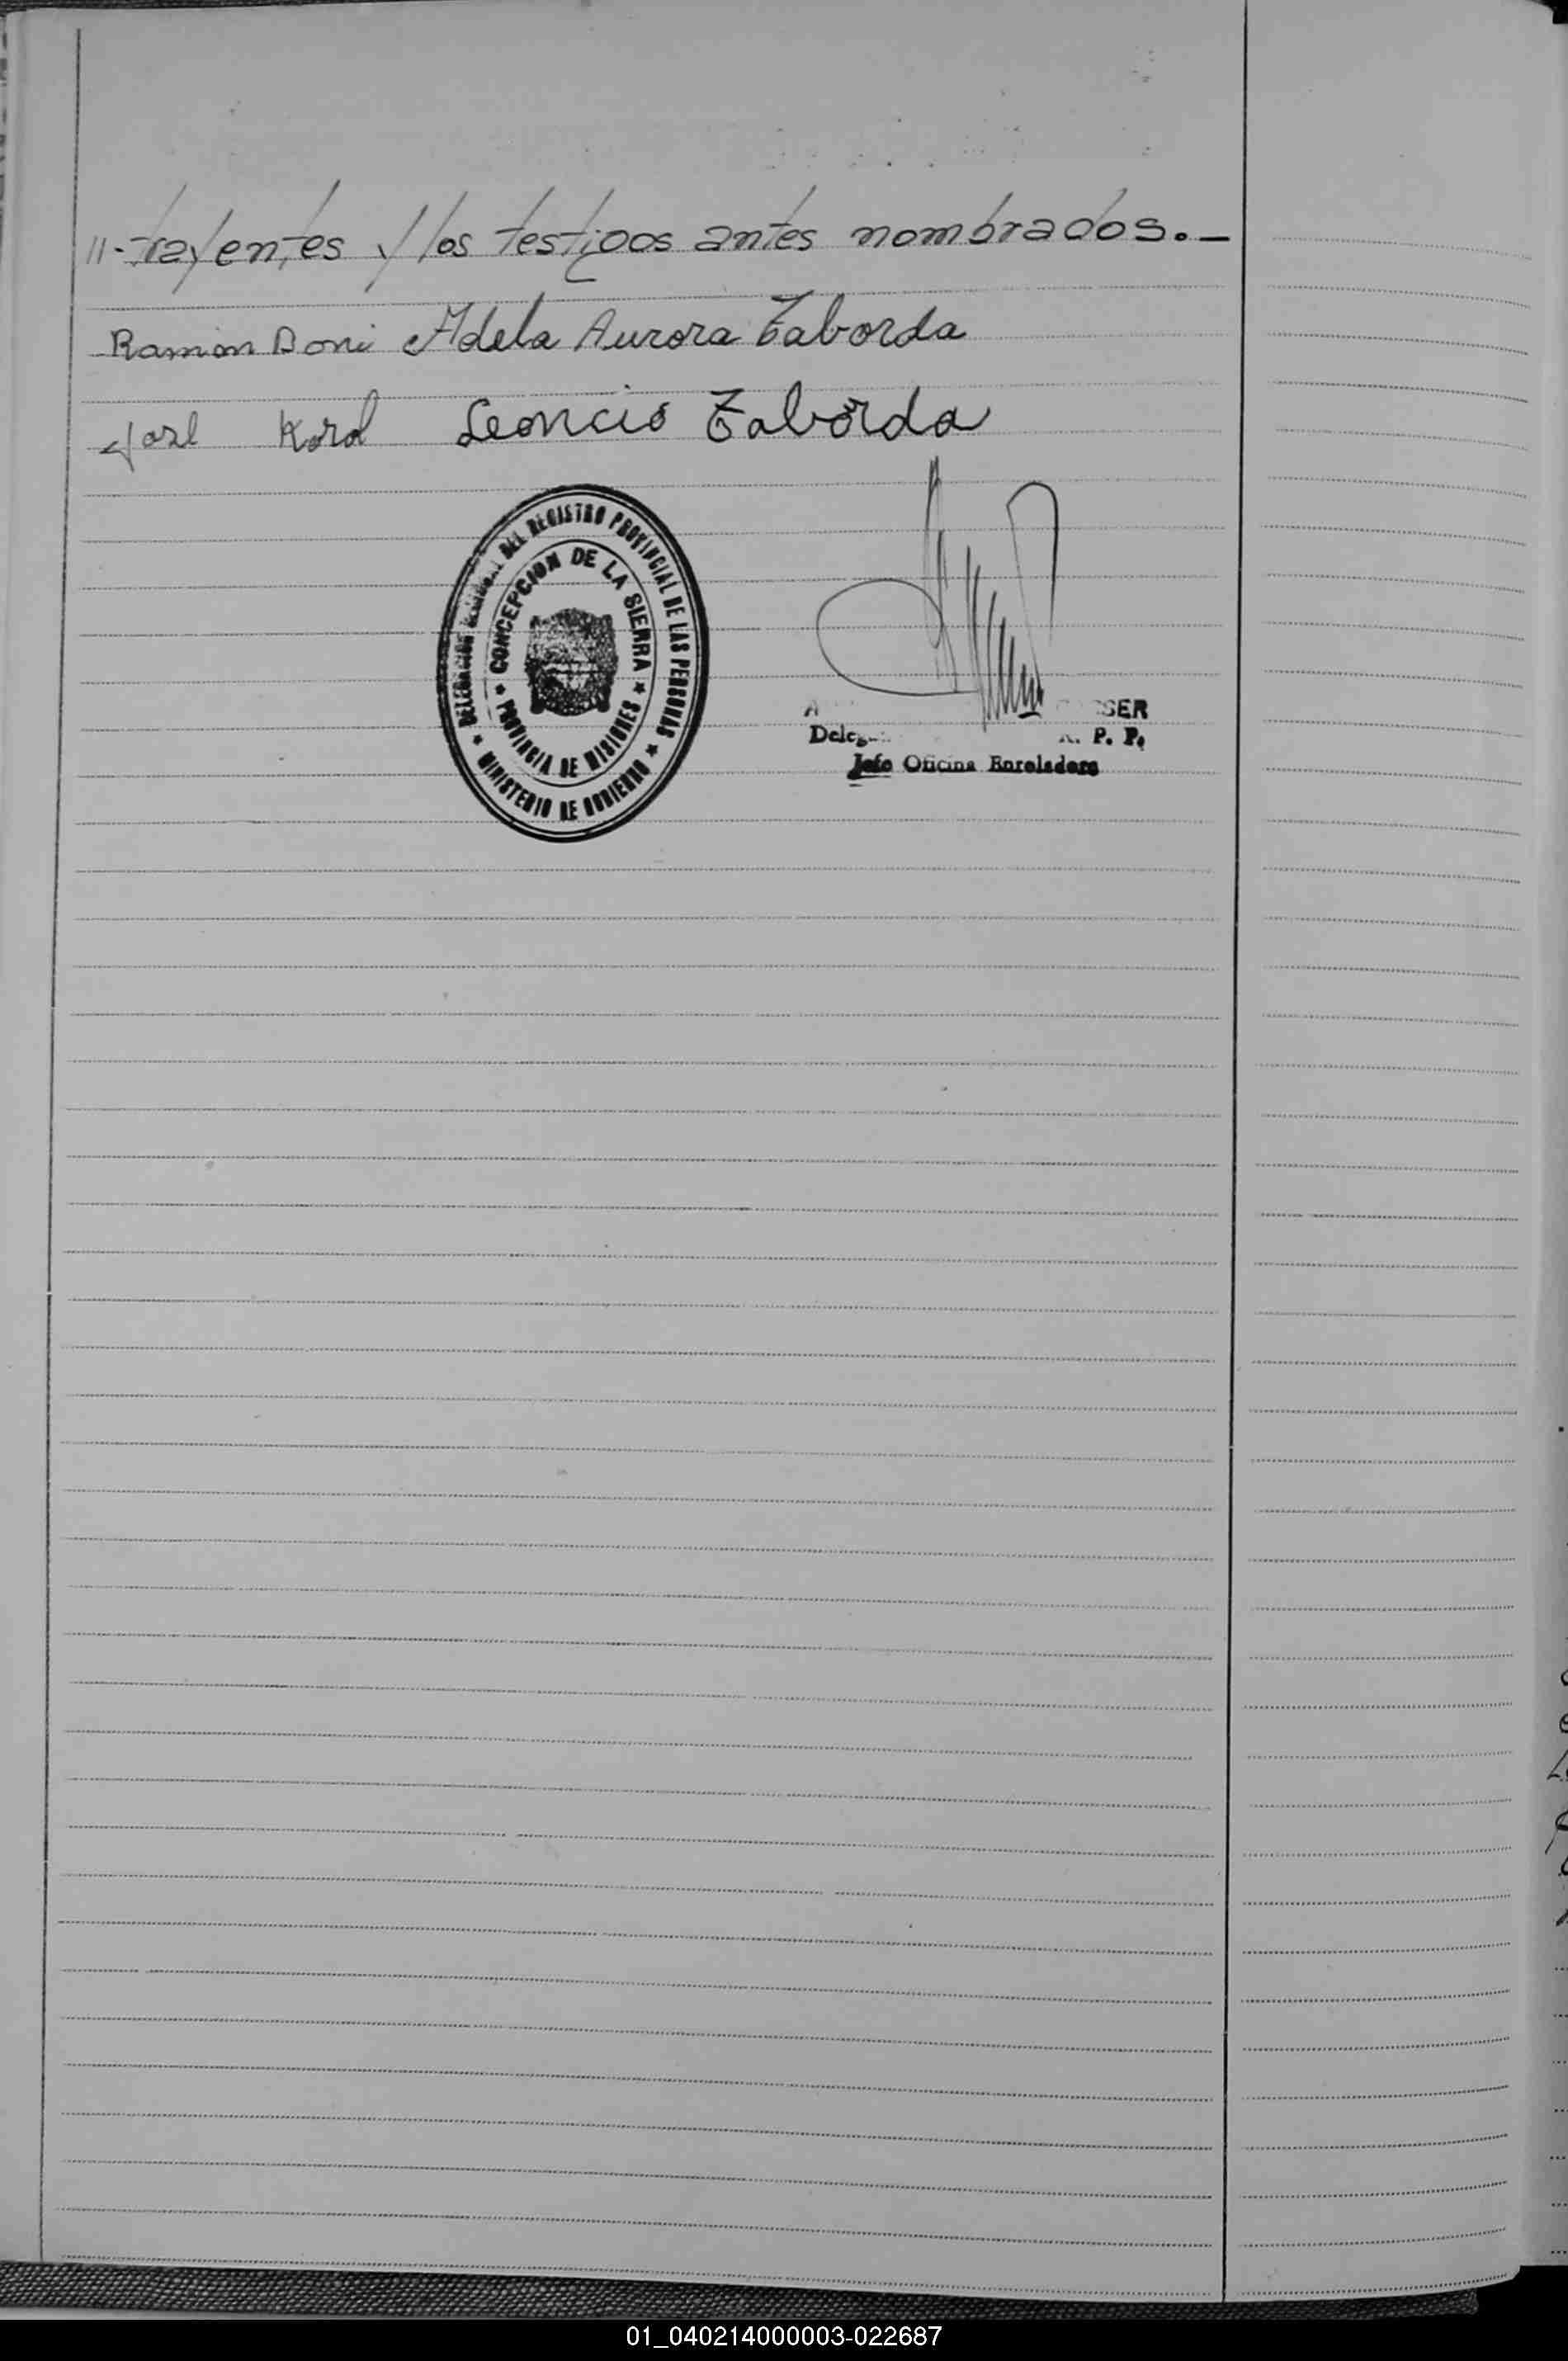 11-trayentes y los testigos antes nombrados.-
Ramon Doni Adela Aurora Taborda
José Korol Leoncio Taborda
DEL REGISTRO PROVINCIAL DE LAS PERSONAS
CONCEPCION DE LA SIERRA
PROVINCIA DE MISIONES
MINISTERIO DE GOBIERNO
P. P.
Jefe Oficina Enroladora
01_040214000003-022687